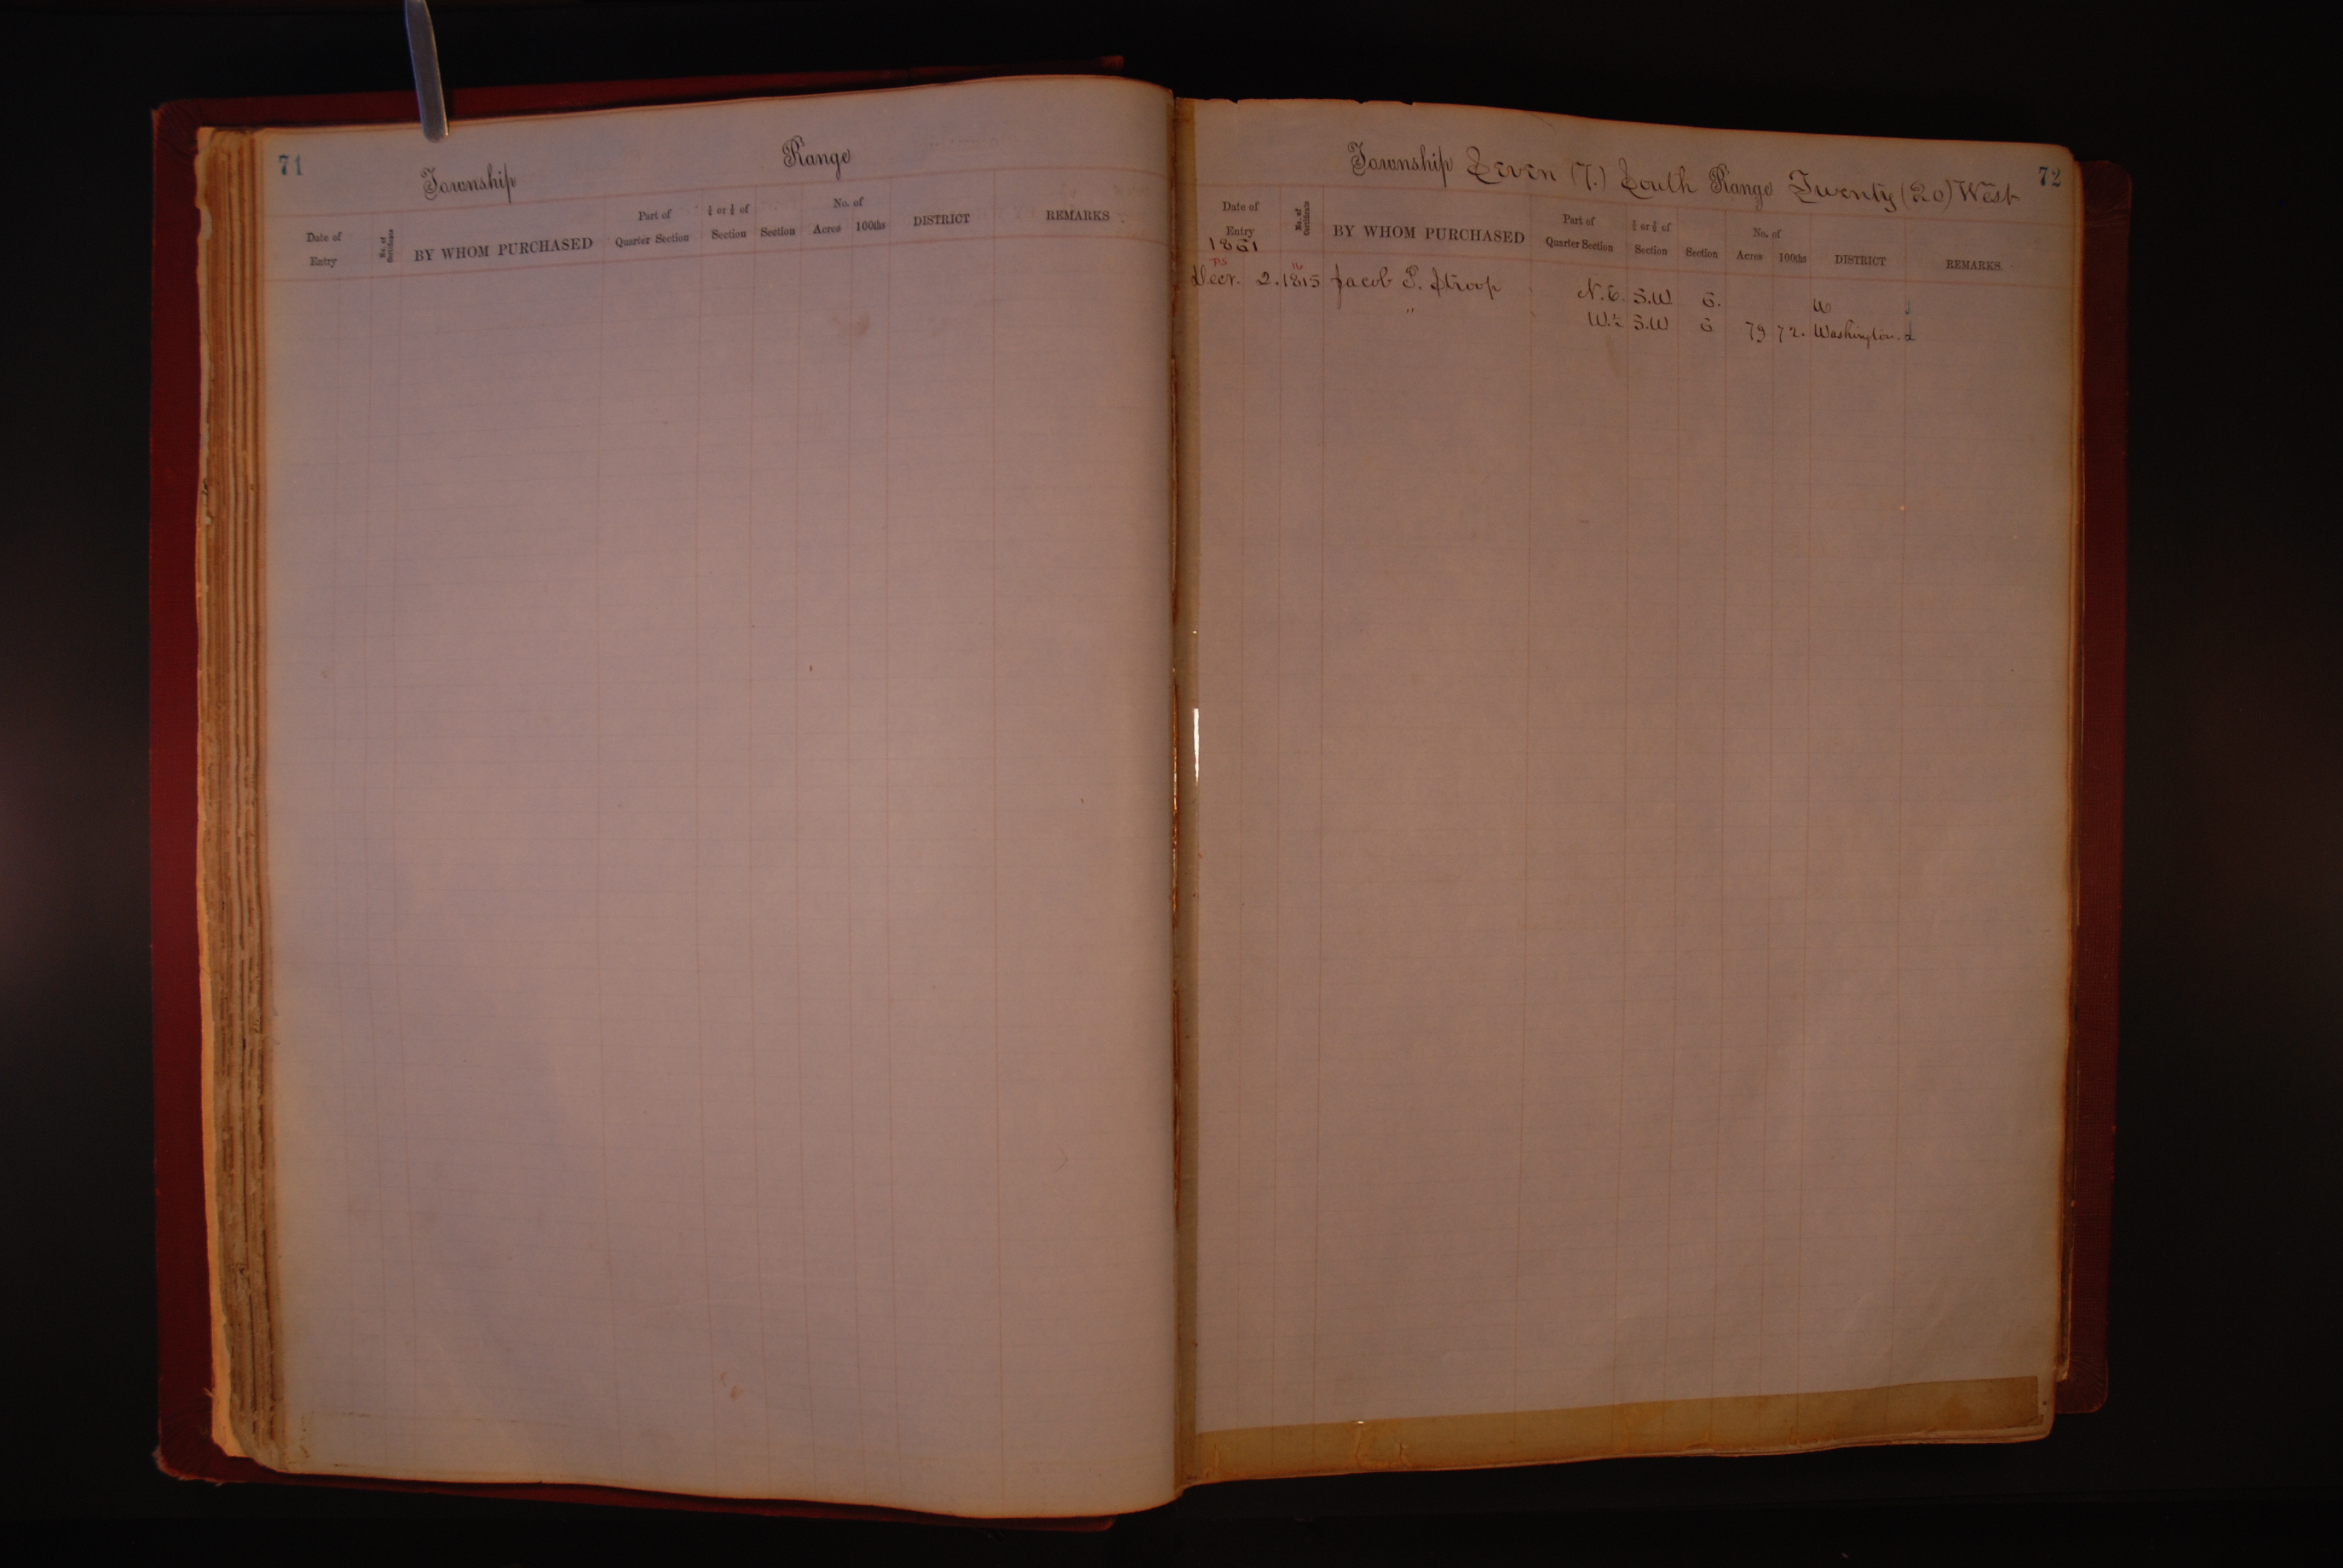 71
Township Range
Date of Entry No. of Certificate BY WHOM PURCHASED Part of Quarter Section ¼ or ½ of Section Section No. of Acres 100ths DISTRICT REMARKS
72
Township Seven (7.) South Range Twenty (20) West
Date of Entry No. of Certificate BY WHOM PURCHASED Part of Quarter Section ¼ or ½ of Section Section No. of Acres 100ths DISTRICT REMARKS.
1861
Decr. 2. 1815 Jacob P. Stroop N.E. S.W 6. W
" W.½ S.W 6 79 72. Washington.